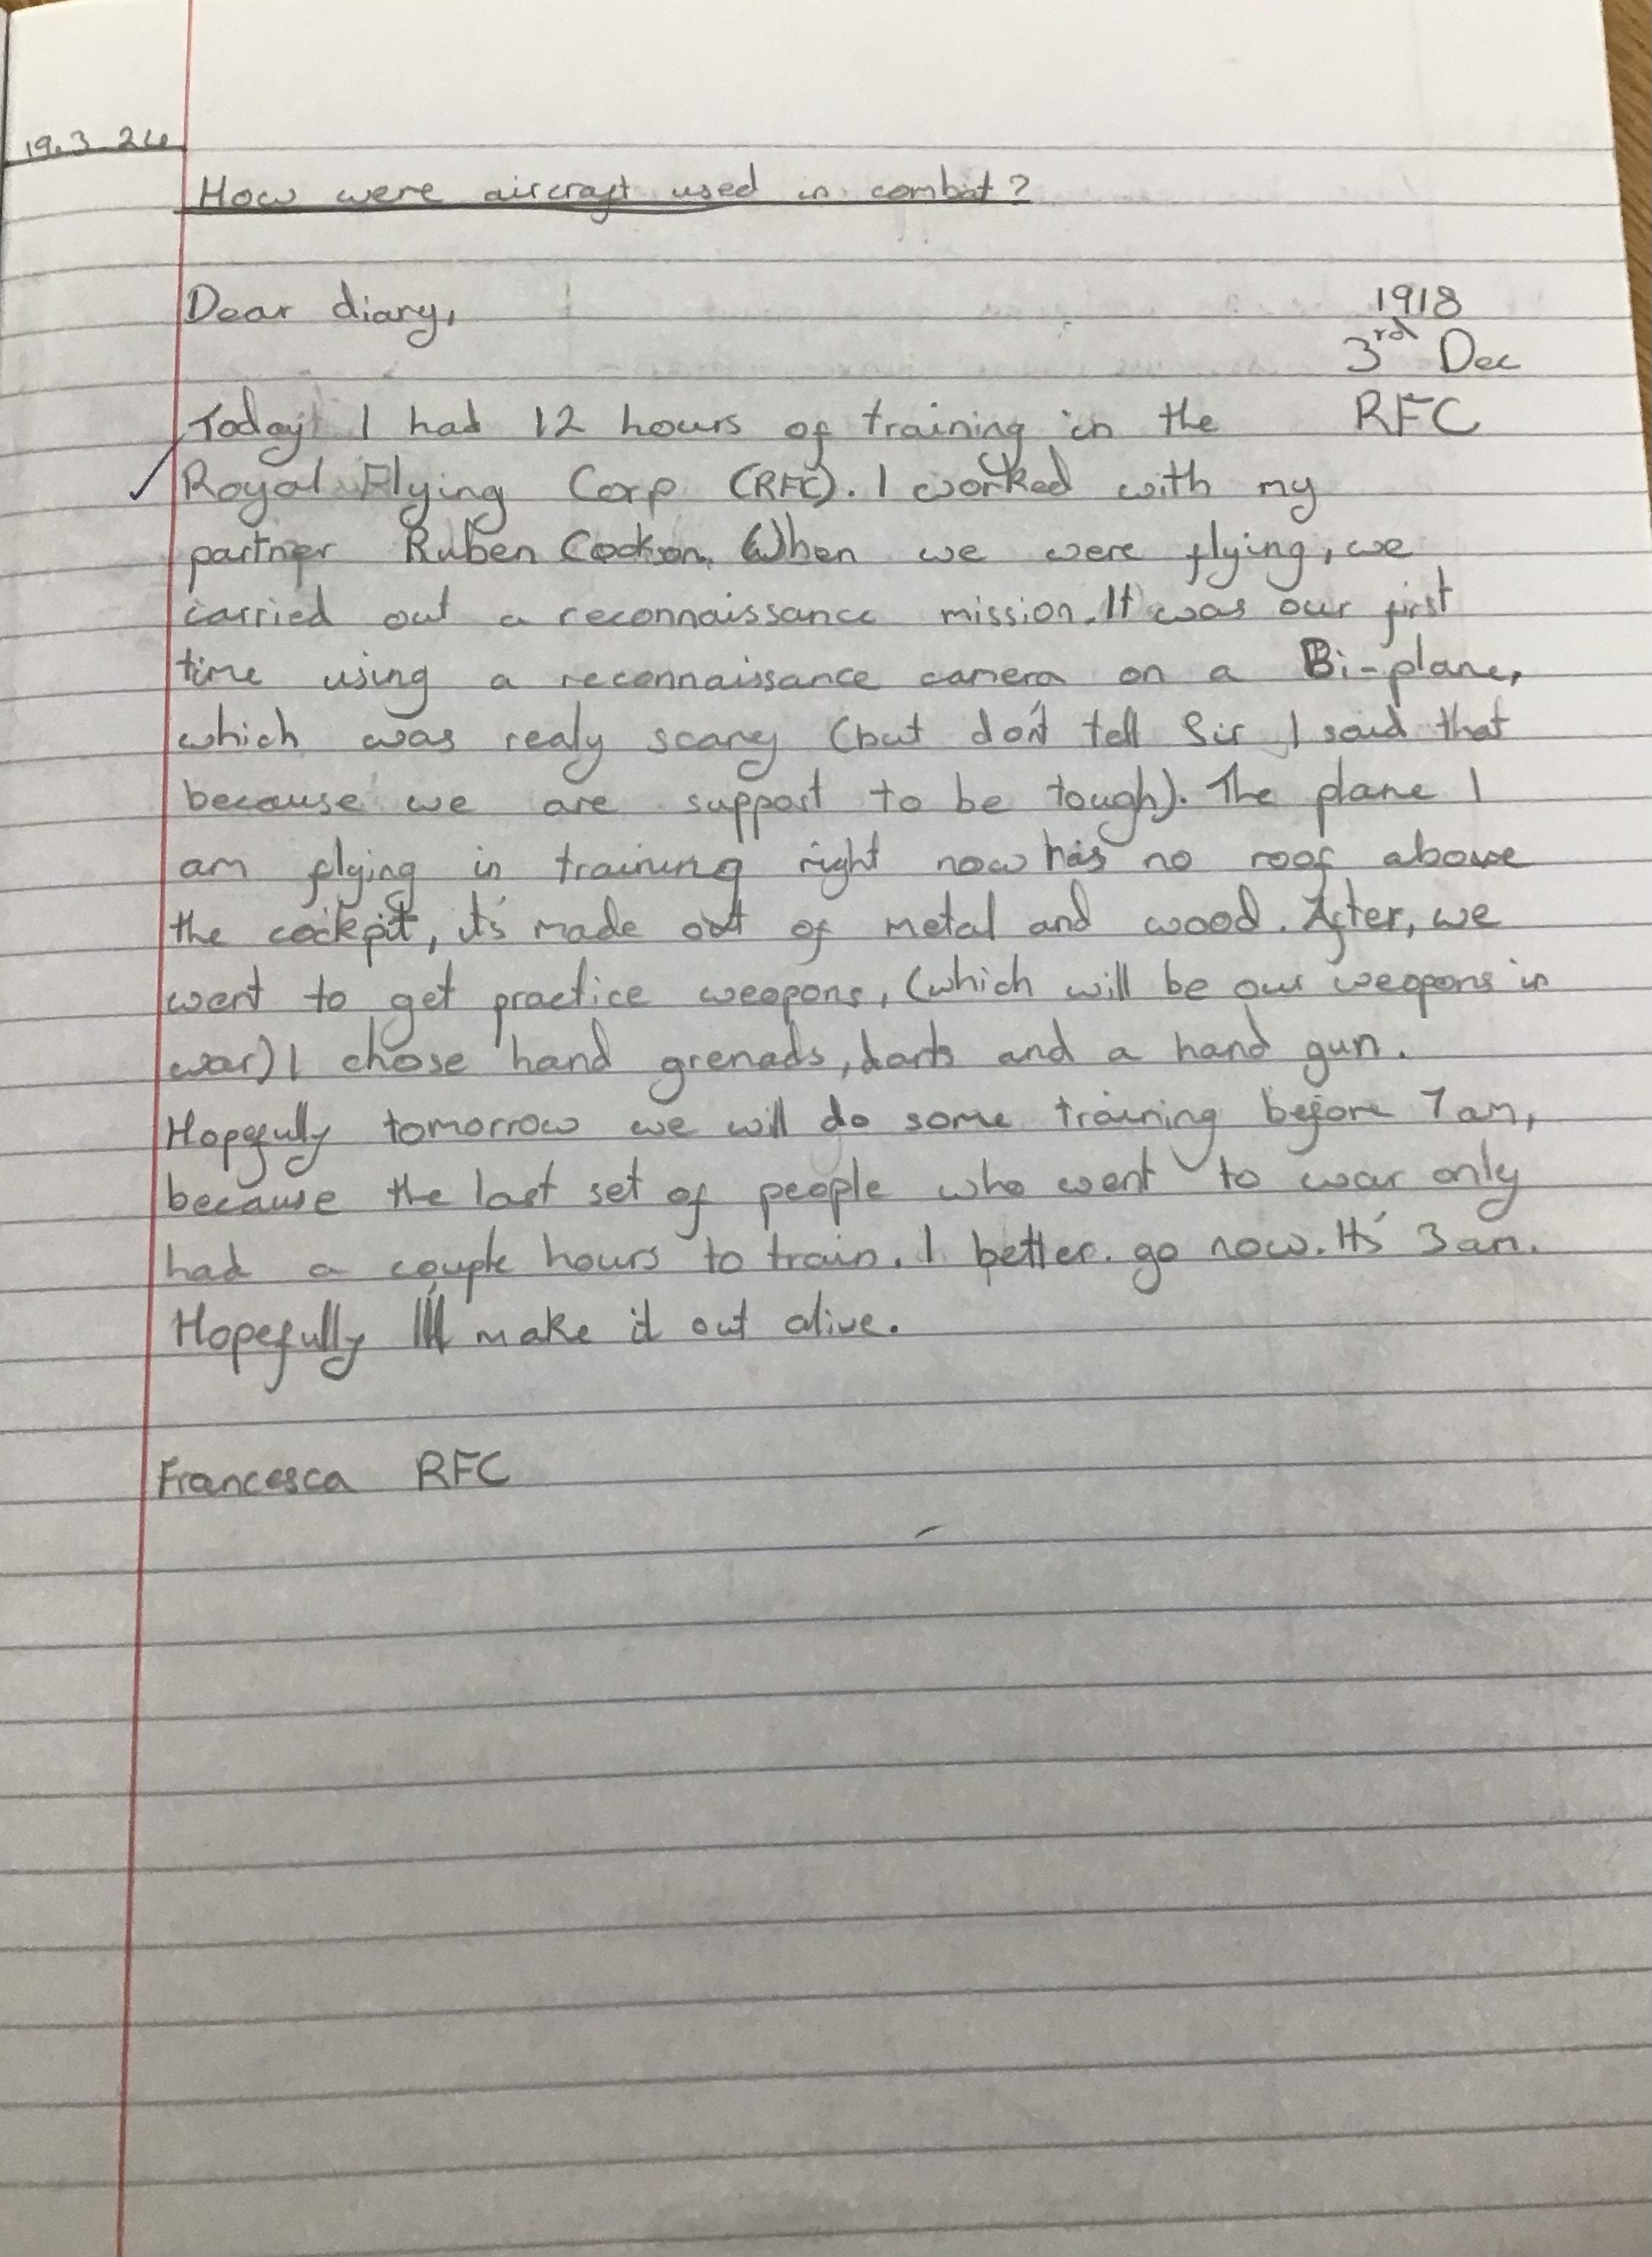 19.3.24
How were aircraft used in combat?
Dear diary,
1918
3rd Dec
RFC
Today I had 12 hours of training in the
Royal Flying Corp (RFC). I worked with my
partner Ruben Cookson. When we were flying, we
carried out a reconnaissance mission. It was our first
time using a reconnaissance camera on a Bi-plane,
which was realy scary (but don't tell Sir I said that
because we are support to be tough). The plane I
am flying in training right now has no roof above
the cockpit, it's made out of metal and wood. After, we
went to get practice weopons, (which will be our weopons in
war) I chose hand grenads, darts and a hand gun.
Hopefully tomorrow we will do some training before 7am,
because the last set of people who went to war only
had a couple hours to train. I better go now. It's 3am.
Hopefully I'll make it out alive.
Francesca RFC